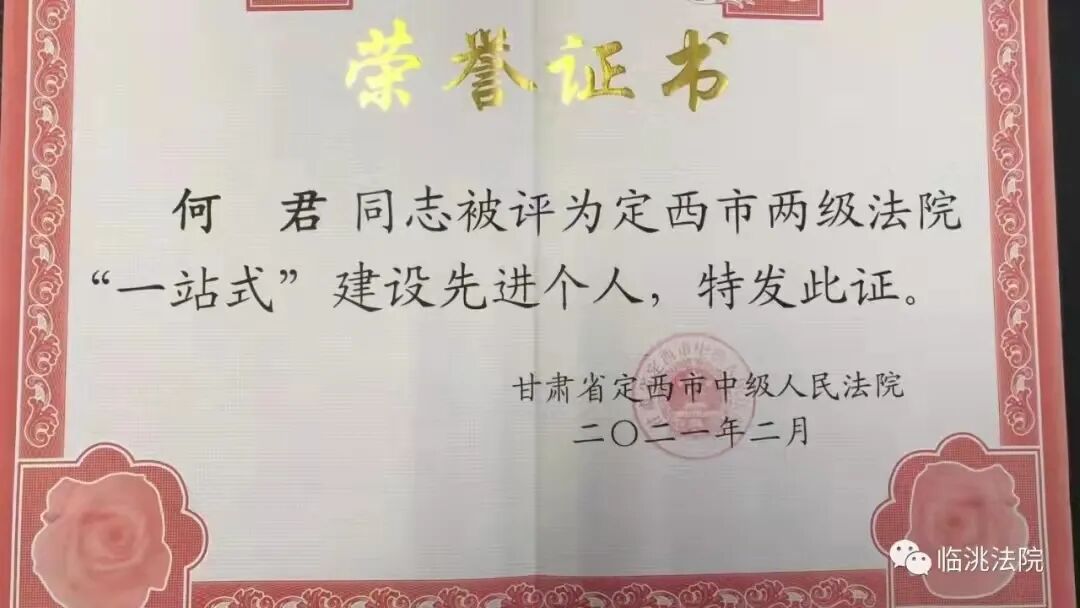 荣誉证书
何 君 同志被评为定西市两级法院
“一站式”建设先进个人，特发此证。
甘肃省定西市中级人民法院
二〇二一年二月
临洮法院